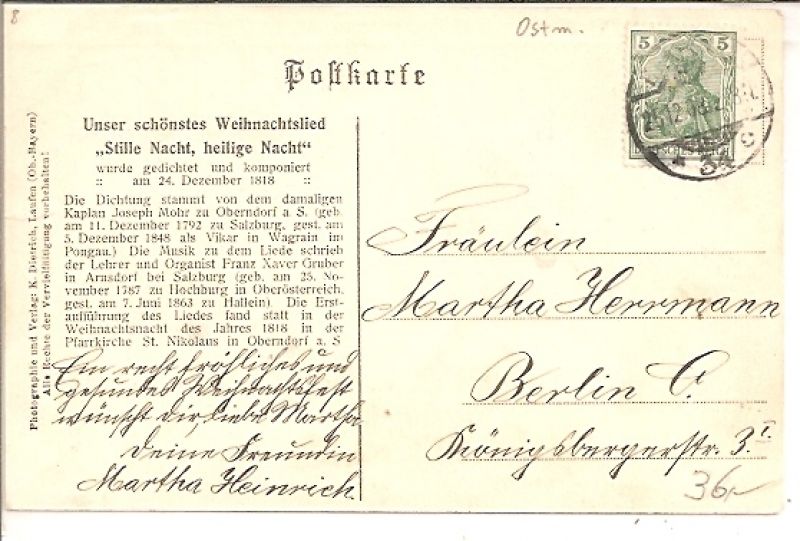 8
Ostm.
Postkarte
5 5
DEUTSCHES REICH
25.12.
34 c
Unser schönstes Weihnachtslied
„Stille Nacht, heilige Nacht“
wurde gedichtet und komponiert
:: am 24. Dezember 1818 ::
Die Dichtung stammt von dem damaligen
Kaplan Joseph Mohr zu Oberndorf a. S. (geb.
am 11. Dezember 1792 zu Salzburg, gest. am
5. Dezember 1848 als Vikar in Wagrain im
Pongau.) Die Musik zu dem Liede schrieb
der Lehrer und Organist Franz Xaver Gruber
in Arnsdorf bei Salzburg (geb. am 25. No-
vember 1787 zu Hochburg in Oberösterreich,
gest. am 7. Juni 1863 zu Hallein). Die Erst-
aufführung des Liedes fand statt in der
Weihnachtsnacht des Jahres 1818 in der
Pfarrkirche St. Nikolaus in Oberndorf a. S
Ein recht fröhliches und
gesundes Weihnachtsfest
wünscht dir, liebe Martha
Deine Freundin
Martha Heinrich.
Photographie und Verlag: K. Dietrich, Laufen (Ob.-Bayern)
Alle Rechte der Vervielfältigung vorbehalten!
Fräulein
Martha Herrmann
Berlin O.
Königsbergerstr. 3.I.
36,-